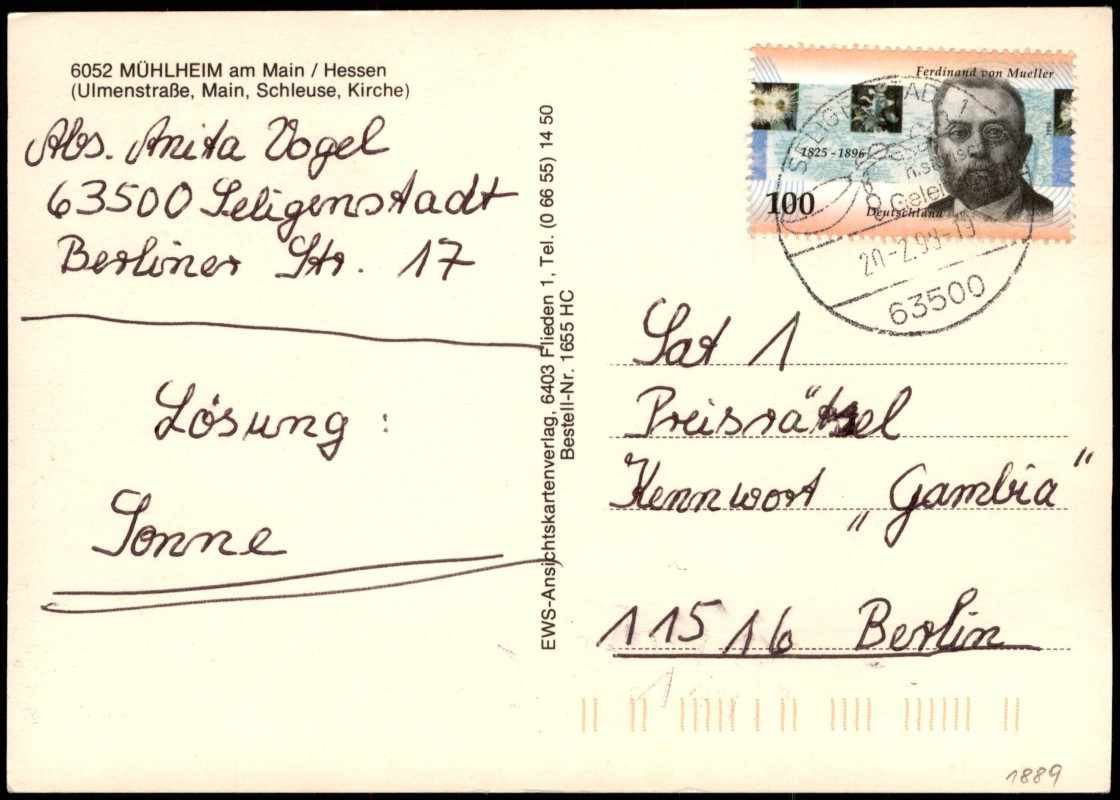 6052 MÜHLHEIM am Main / Hessen
(Ulmenstraße, Main, Schleuse, Kirche)
Abs. Anita Vogel
63500 Seligenstadt
Berliner Str. 17
Lösung :
Sonne
EWS-Ansichtskartenverlag, 6403 Flieden 1, Tel. (0 66 55) 14 50
Bestell-Nr. 1655 HC
Ferdinand von Mueller
1825 - 1896
100
Deutschland
SELIGENSTADT 1
63500
Sat 1
Preisrätsel
Kennwort „Gambia"
11516 Berlin
1889